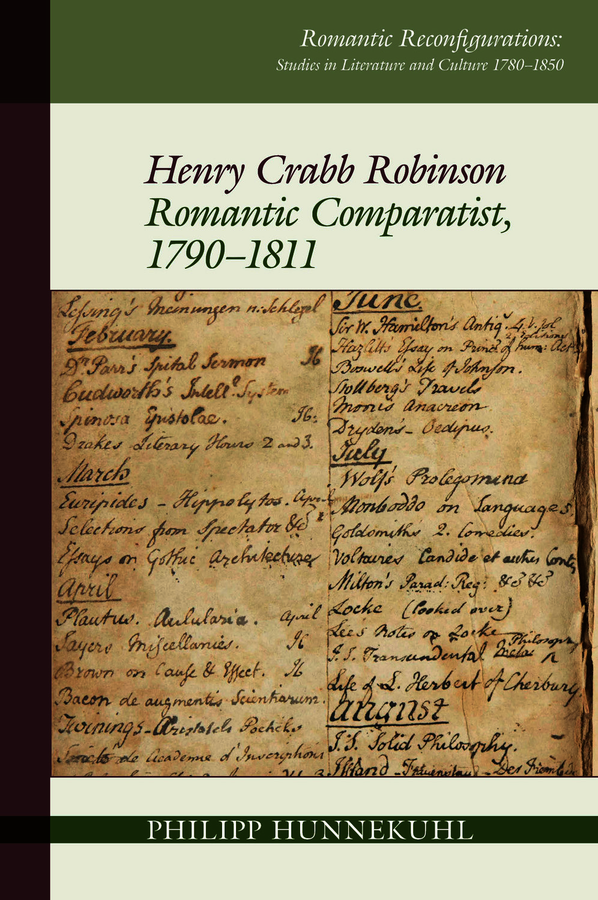 Romantic Reconfigurations:
Studies in Literature and Culture 1780–1850
Henry Crabb Robinson
Romantic Comparatist,
1790–1811
Lessing's Meinungen n: Schlegel
February
Dr. Parr's Spital Sermon
Cudworth's Intell. System
Spinosa Epistolae.
Drakes Literary Hours 2 and 3.
March
Euripides - Hippolytos. April
Selections from Spectator &c
Essays on Gothic Architecture
April
Plautus. Aulularia. April
Sayers Miscellanies.
Brown on Cause & Effect.
Bacon de augmentis Scientiarum.
Twinings - Aristotels Poetics
de Academie d'Inscriptions
June
Sir W. Hamilton's Antiq. 4. V. fol
Hazlitts Essay on Princ. of hum: Act
Boswell's Life of Johnson.
Stollberg's Travels
Morris Anacreon
Dryden's - Oedipus.
July
Wolf's Prolegomena
Monboddo on Languages
Goldsmith's 2. Comedies.
Voltaires Candide et autres Contes
Milton's Parad: Reg: &c &c
Locke (looked over)
Lee's Notes on Locke
I. S. Transcendental Philosophy
Life of L. Herbert of Cherbury
August
I. S. Solid Philosophy.
Iffland -
PHILIPP HUNNEKUHL